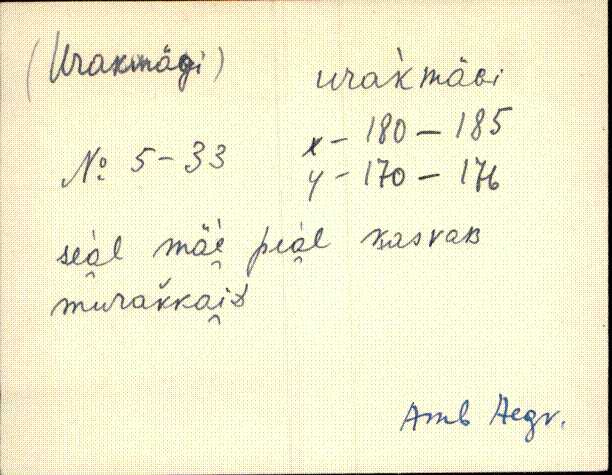 (Urakmägi)
urak̀mäGi
№ 5-33
x - 180 - 185
y - 170 - 176
seál mäè peál kasvaB
murakkaiD
Amb Aegv.